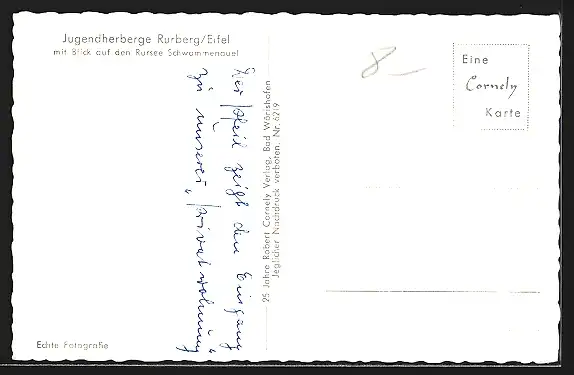 Jugendherberge Rurberg/Eifel
mit Blick auf den Rursee Schwammenauel
8.–
Eine
Cornely
Karte
Der Pfeil zeigt den Eingang
zu unserer „Privatwohnung“
25 Jahre Robert Cornely Verlag, Bad Wörishofen
Jeglicher Nachdruck verboten. Nr. 6219
Echte Fotografie